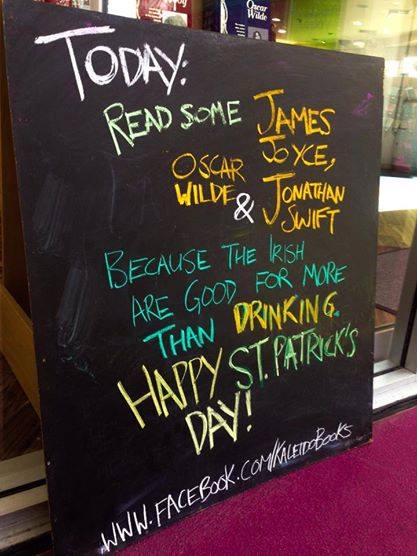 Oscar
Wilde
TODAY:
READ SOME JAMES
JOYCE,
OSCAR
WILDE & JONATHAN
SWIFT
BECAUSE THE IRISH
ARE GOOD FOR MORE
THAN DRINKING.
HAPPY ST. PATRICK'S
DAY!
WWW.FACEBOOK.COM/KALEIDOBOOKS